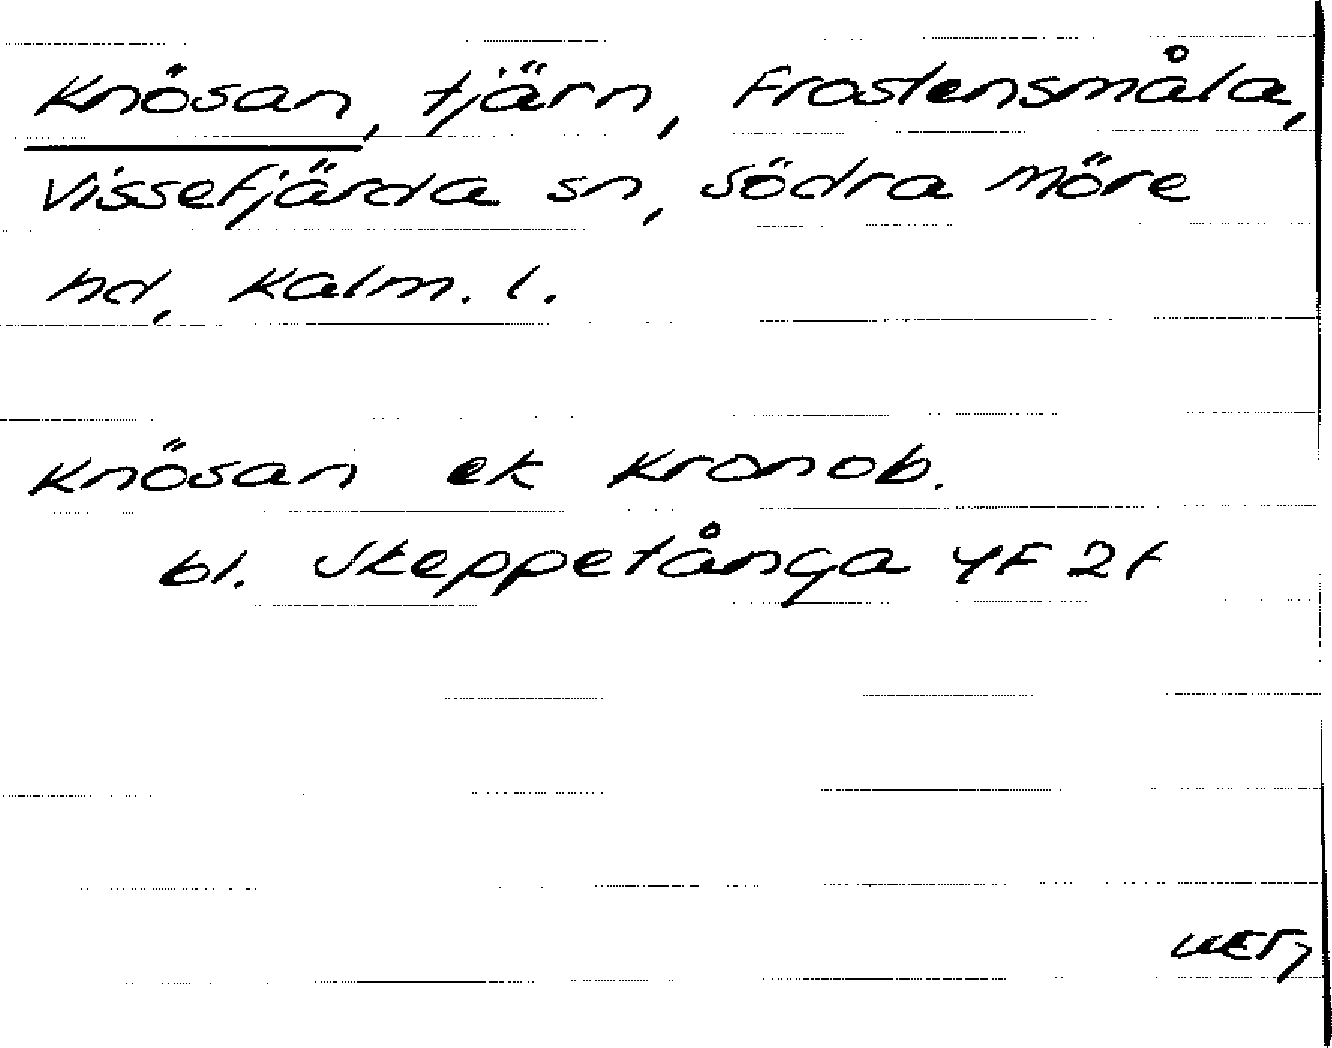 Knösan, tjärn, Frostensmåla,
Vissefjärda sn, Södra Möre
hd, Kalm. l.
Knösan ek Kronob.
bl. Skeppetånga 4F 2f